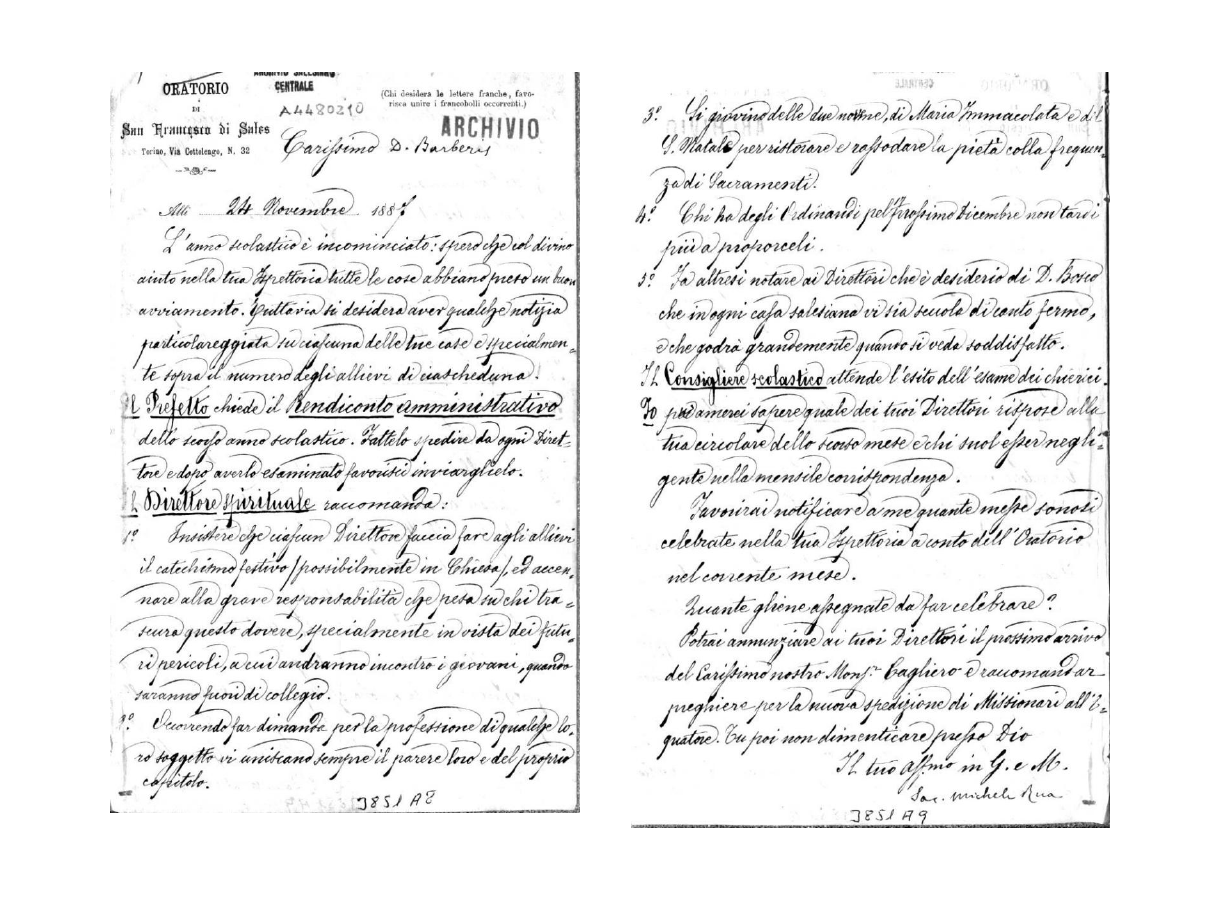 ORATORIO
DI
San Francesco di Sales
Torino, Via Cottolengo, N. 32
ARCHIVIO SALESIANO
CENTRALE
A4480210
(Chi desidera le lettere franche, favo-
risca unire i francobolli occorrenti.)
ARCHIVIO
Carissimo D. Barberis
Addì 24 Novembre 1887
L'anno scolastico è incominciato: spero che col divino
aiuto nella tua Ispettoria tutte le cose abbiano preso un buon
avviamento. Tuttavia si desidera aver qualche notizia
particolareggiata su ciascuna delle tue case e specialmen=
te sopra il numero degli allievi di ciascheduna.
Il Prefetto chiede il Rendiconto amministrativo
dello scorso anno scolastico. Fattelo spedire da ogni Diret-
tore e dopo averlo esaminato favorisci inviarglielo.
Il Direttore spirituale raccomanda:
1º Insistere che ciascun Direttore faccia fare agli allievi
il catechismo festivo (possibilmente in Chiesa), ed accen=
nare alla grave responsabilità che pesa su chi tra=
scura questo dovere, specialmente in vista dei futu=
ri pericoli, a cui andranno incontro i giovani, quando
saranno fuori di collegio.
2º Occorrendo far dimande per la professione di qualche lo=
ro soggetto vi uniscano sempre il parere loro e del proprio
capitolo.
J851 A8
3º Si giovino delle due novene, di Maria Immacolata e del
S. Natale per ristorare e rassodare la pietà colla frequen=
za di Sacramenti.
4º Chi ha degli Ordinandi pel prossimo Dicembre non tardi
più a proporceli.
5º Fa altresì notare ai Direttori che è desiderio di D. Bosco
che in ogni casa salesiana vi sia scuola di canto fermo,
e che godrà grandemente quando si veda soddisfatto.
Il Consigliere scolastico attende l'esito dell'esame dei chierici.
Io poi amerei sapere quale dei tuoi Direttori rispose alla
tua circolare dello scorso mese e chi suol esser negli=
gente nella mensile corrispondenza.
Favorirai notificare a me quante messe sonosi
celebrate nella tua Ispettoria a conto dell'Oratorio
nel corrente mese.
Quante gliene assegnate da far celebrare?
Potrai annunziare ai tuoi Direttori il prossimo arrivo
del Carissimo nostro Monsr. Cagliero e raccomandar
preghiere per la nuova spedizione di Missionari all'E=
quatore. Tu poi non dimenticare presso Dio
Il tuo affmo in G. e M.
Sac. Michele Rua
J851 A9